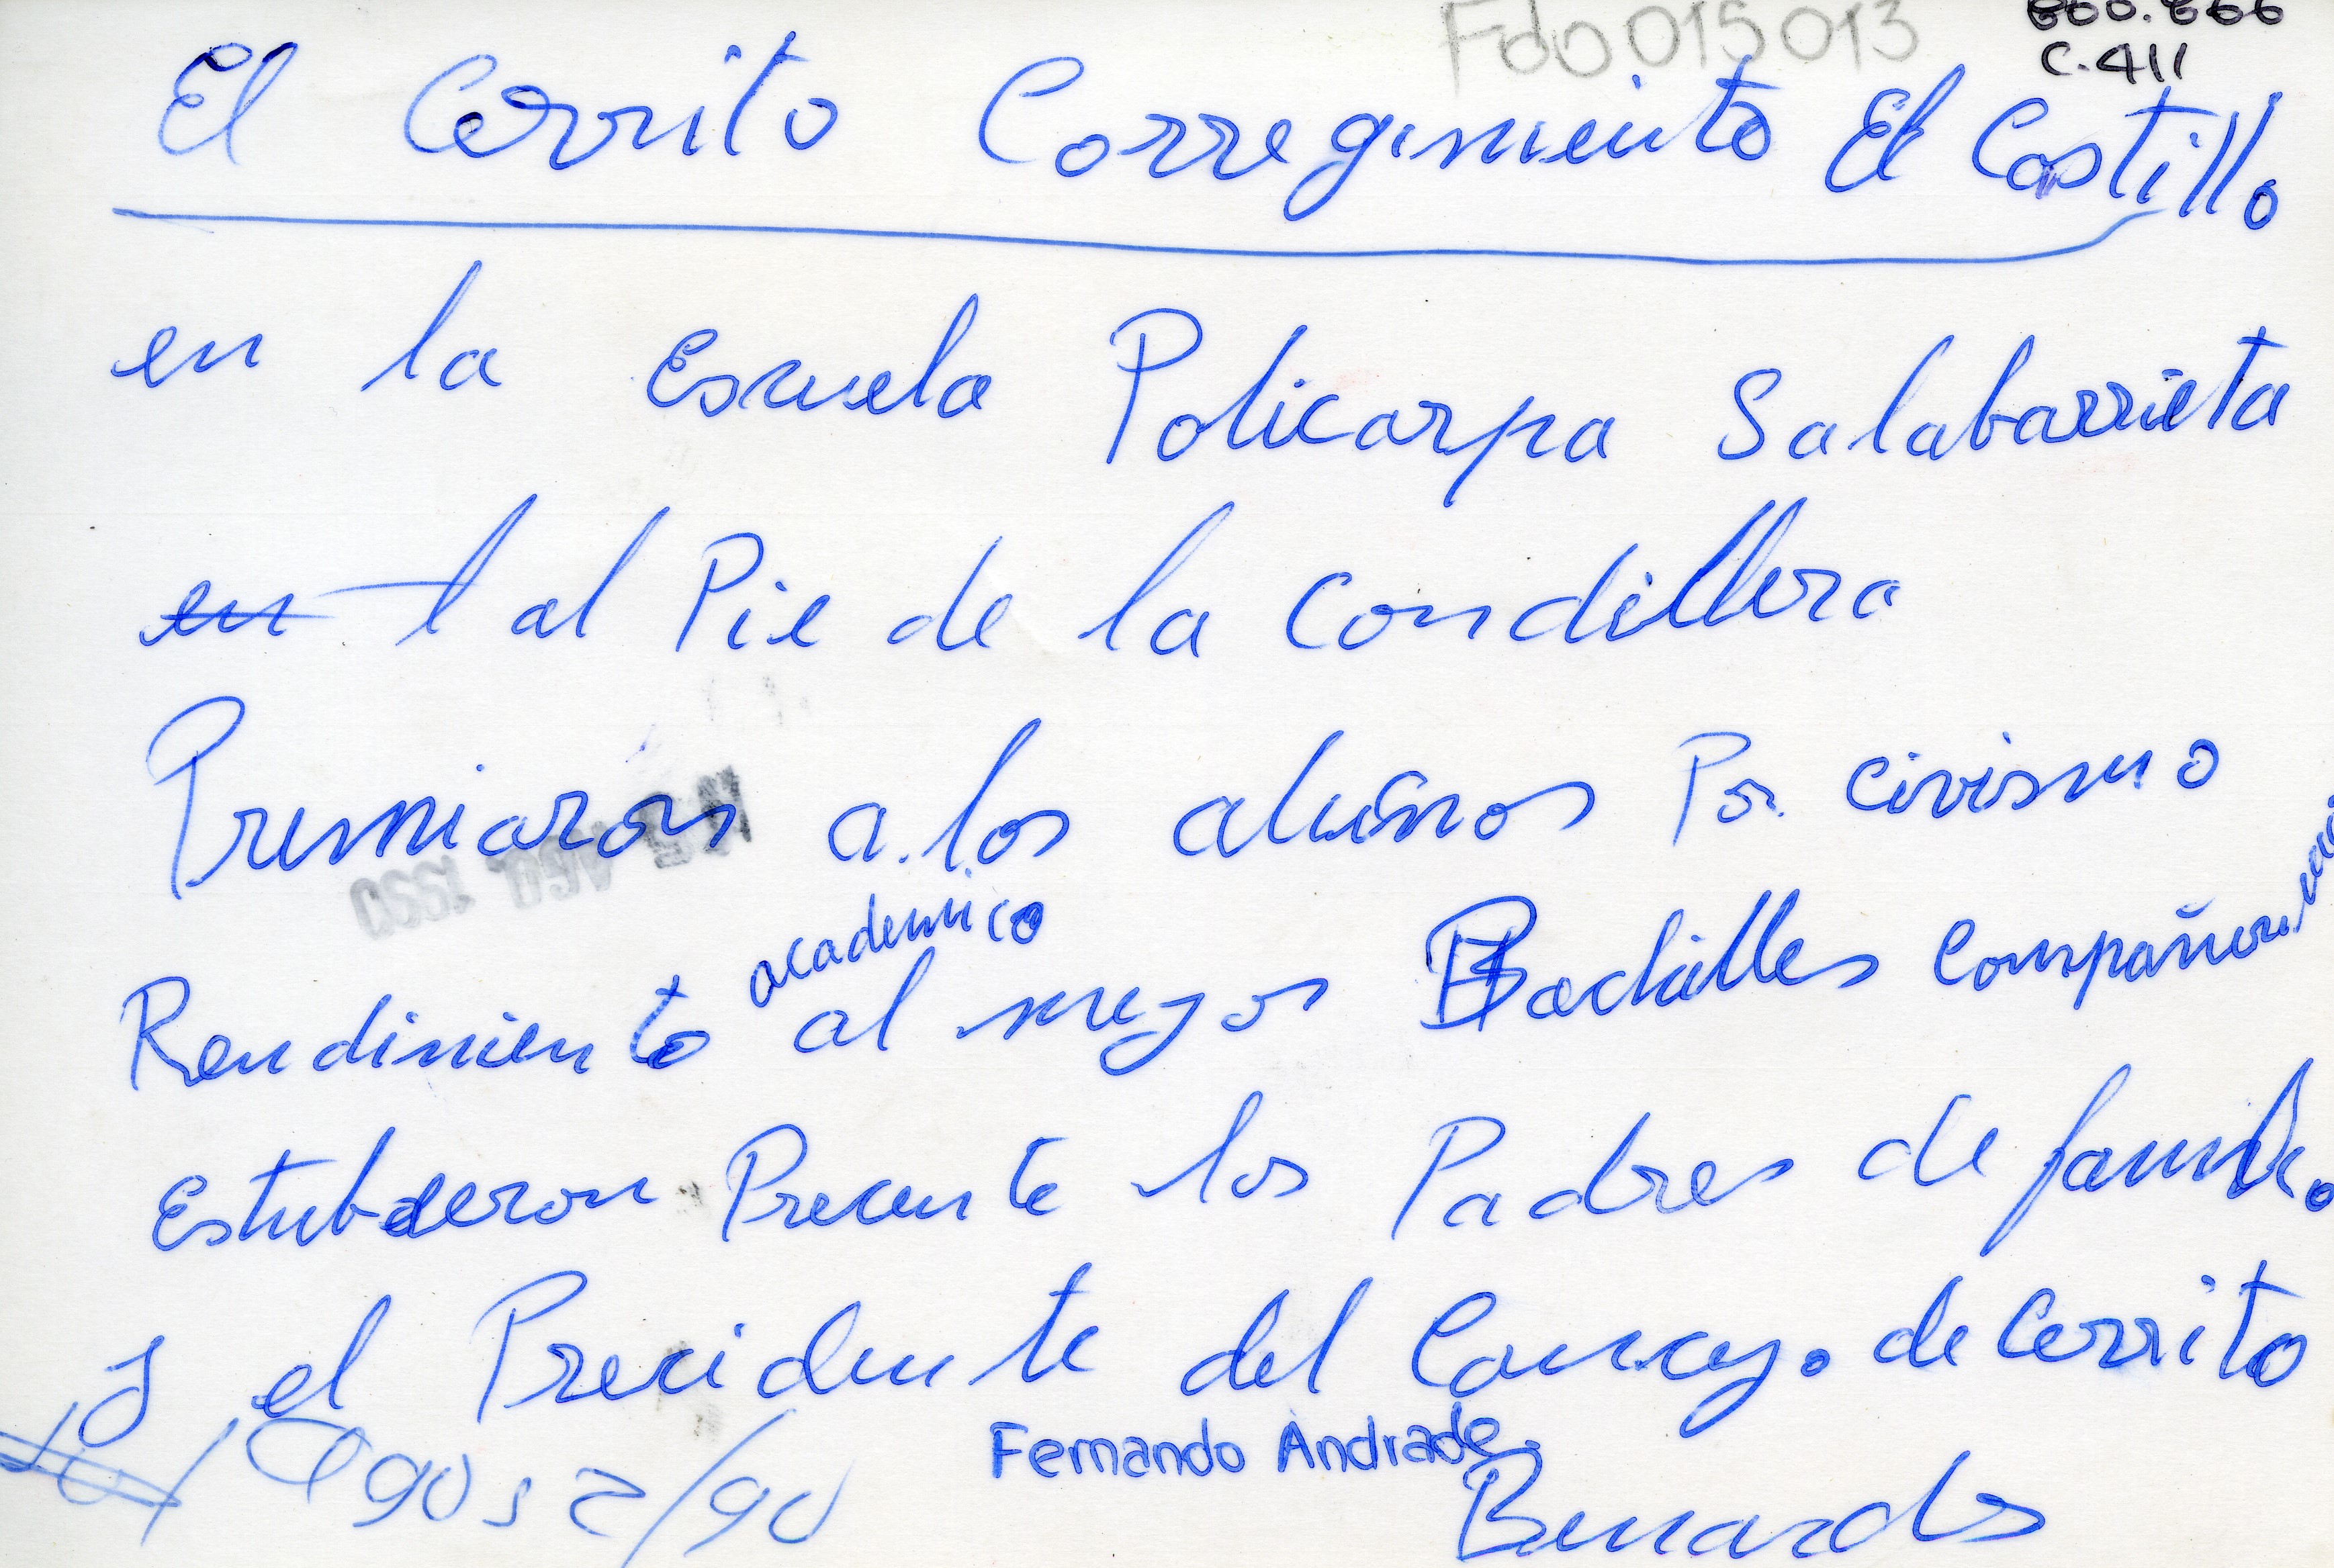 Fdo 015013
C-411
El Cerrito Corregimiento El Castillo
en la Escuela Policarpa Salabarrieta
al Pie de la Condillera
Premiaron a los alumnos Por civismo
academico
Rendimiento al mejor Bachilles Compañeri
Estubieron Precente los Padres de familia
y el Precidente del Concejo de Cerrito
Fernando Andrade
Agos 2/90